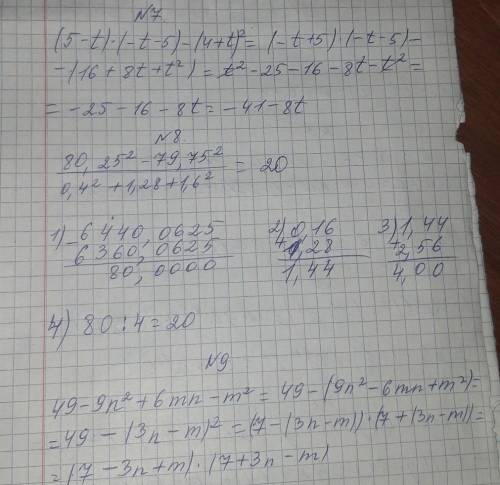 №7
(5-t)·(-t-5)-(4+t)²= (-t+5)·(-t-5)-
-(16+8t+t²)= t²-25-16-8t-t²=
= -25-16-8t= -41-8t
№8.
80,25²-79,75²
0,4²+1,28+1,6² = 20
1) 6440,0625 2) 0,16 3) 1,44
6360,0625 + 1,28 + 2,56
80,0000 1,44 4,00
4) 80:4=20
№9
49-9n²+6mn-m²= 49-(9n²-6mn+m²)=
=49-(3n-m)²=(7-(3n-m))·(7+(3n-m))=
=(7-3n+m)·(7+3n-m)